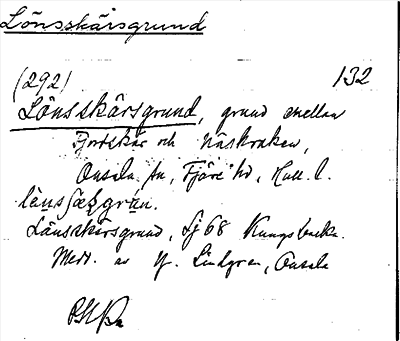 Lönsskärsgrund
(292) 132
Lönsskärsgrund, grund mellan
Fjordskär och Näskroken,
Onsala sn, Fjäre hd, Hall. l.
Länsskärsgrund, Sj 68 Kungsbacka.
Medd. av Lindgren, Onsala